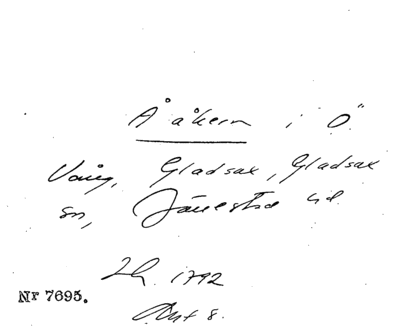 Å åkern i Ö.
Vång, Gladsax, Gladsax
sn, Järrestad hd
1792
Nr 7695.
Akt 8.